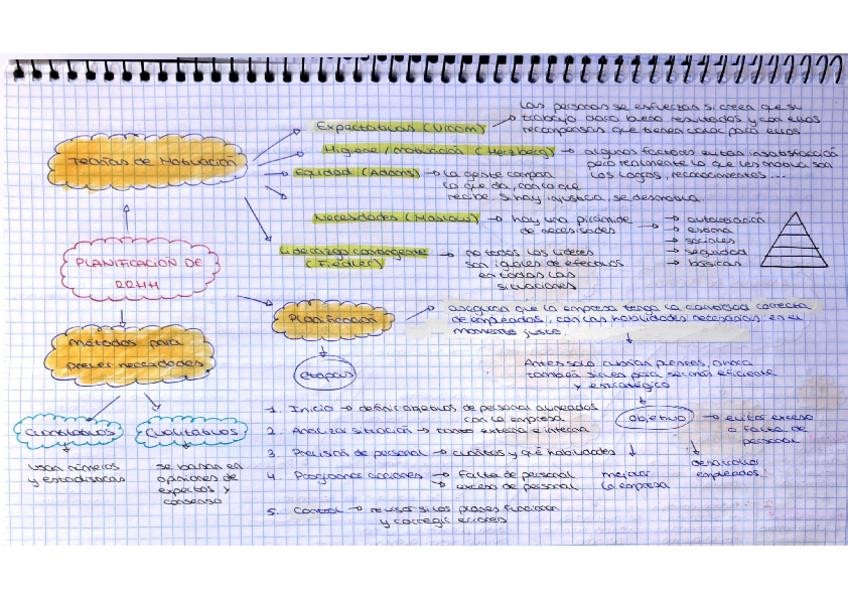 Las personas se esfuerzan si creen que su
Expectativas (Vroom) → trabajo dará buenos resultados y con ellos
recompensas que tienen valor para ellos
Teorías de Motivación
Higiene / motivación (Herzberg) → algunos factores evitan insatisfacción
pero realmente lo que les motiva son
los logros, reconocimientos...
Equidad (Adams) → La gente compara
lo que da, con lo que
recibe. Si hay injusticia, se desmotiva.
Necesidades (Maslow) → hay una pirámide
de necesidades
→ autorrealización
→ estima
→ sociales
→ seguridad
→ básicas
Liderazgo contingente
(Fiedler)
→ no todos los líderes
son iguales de efectivos
en todas las
situaciones
PLANIFICACIÓN DE
RRHH
Planificación
asegurar que la empresa tenga la cantidad correcta
de empleados, con las habilidades necesarias en el
momento justo.
Antes solo cubrían puestos, ahora
también sirven para ser más eficiente
y estratégico
Objetivo → evitar exceso
o falta de
personal
desarrollar
empleados
mejorar
la empresa
etapas
1. Inicio → definir objetivos de personal alineados
con la empresa
2. Analizar situación → tanto externa e interna
3. Previsión de personal → cuántos y qué habilidades
4. Programar acciones → Falta de personal
→ exceso de personal
5. Control → revisar si los planes funcionan
y corregir errores
Métodos para
prever necesidades
Cuantitativos
usan números
y estadísticas
Cualitativos
se basan en
opiniones de
expertos y
consenso